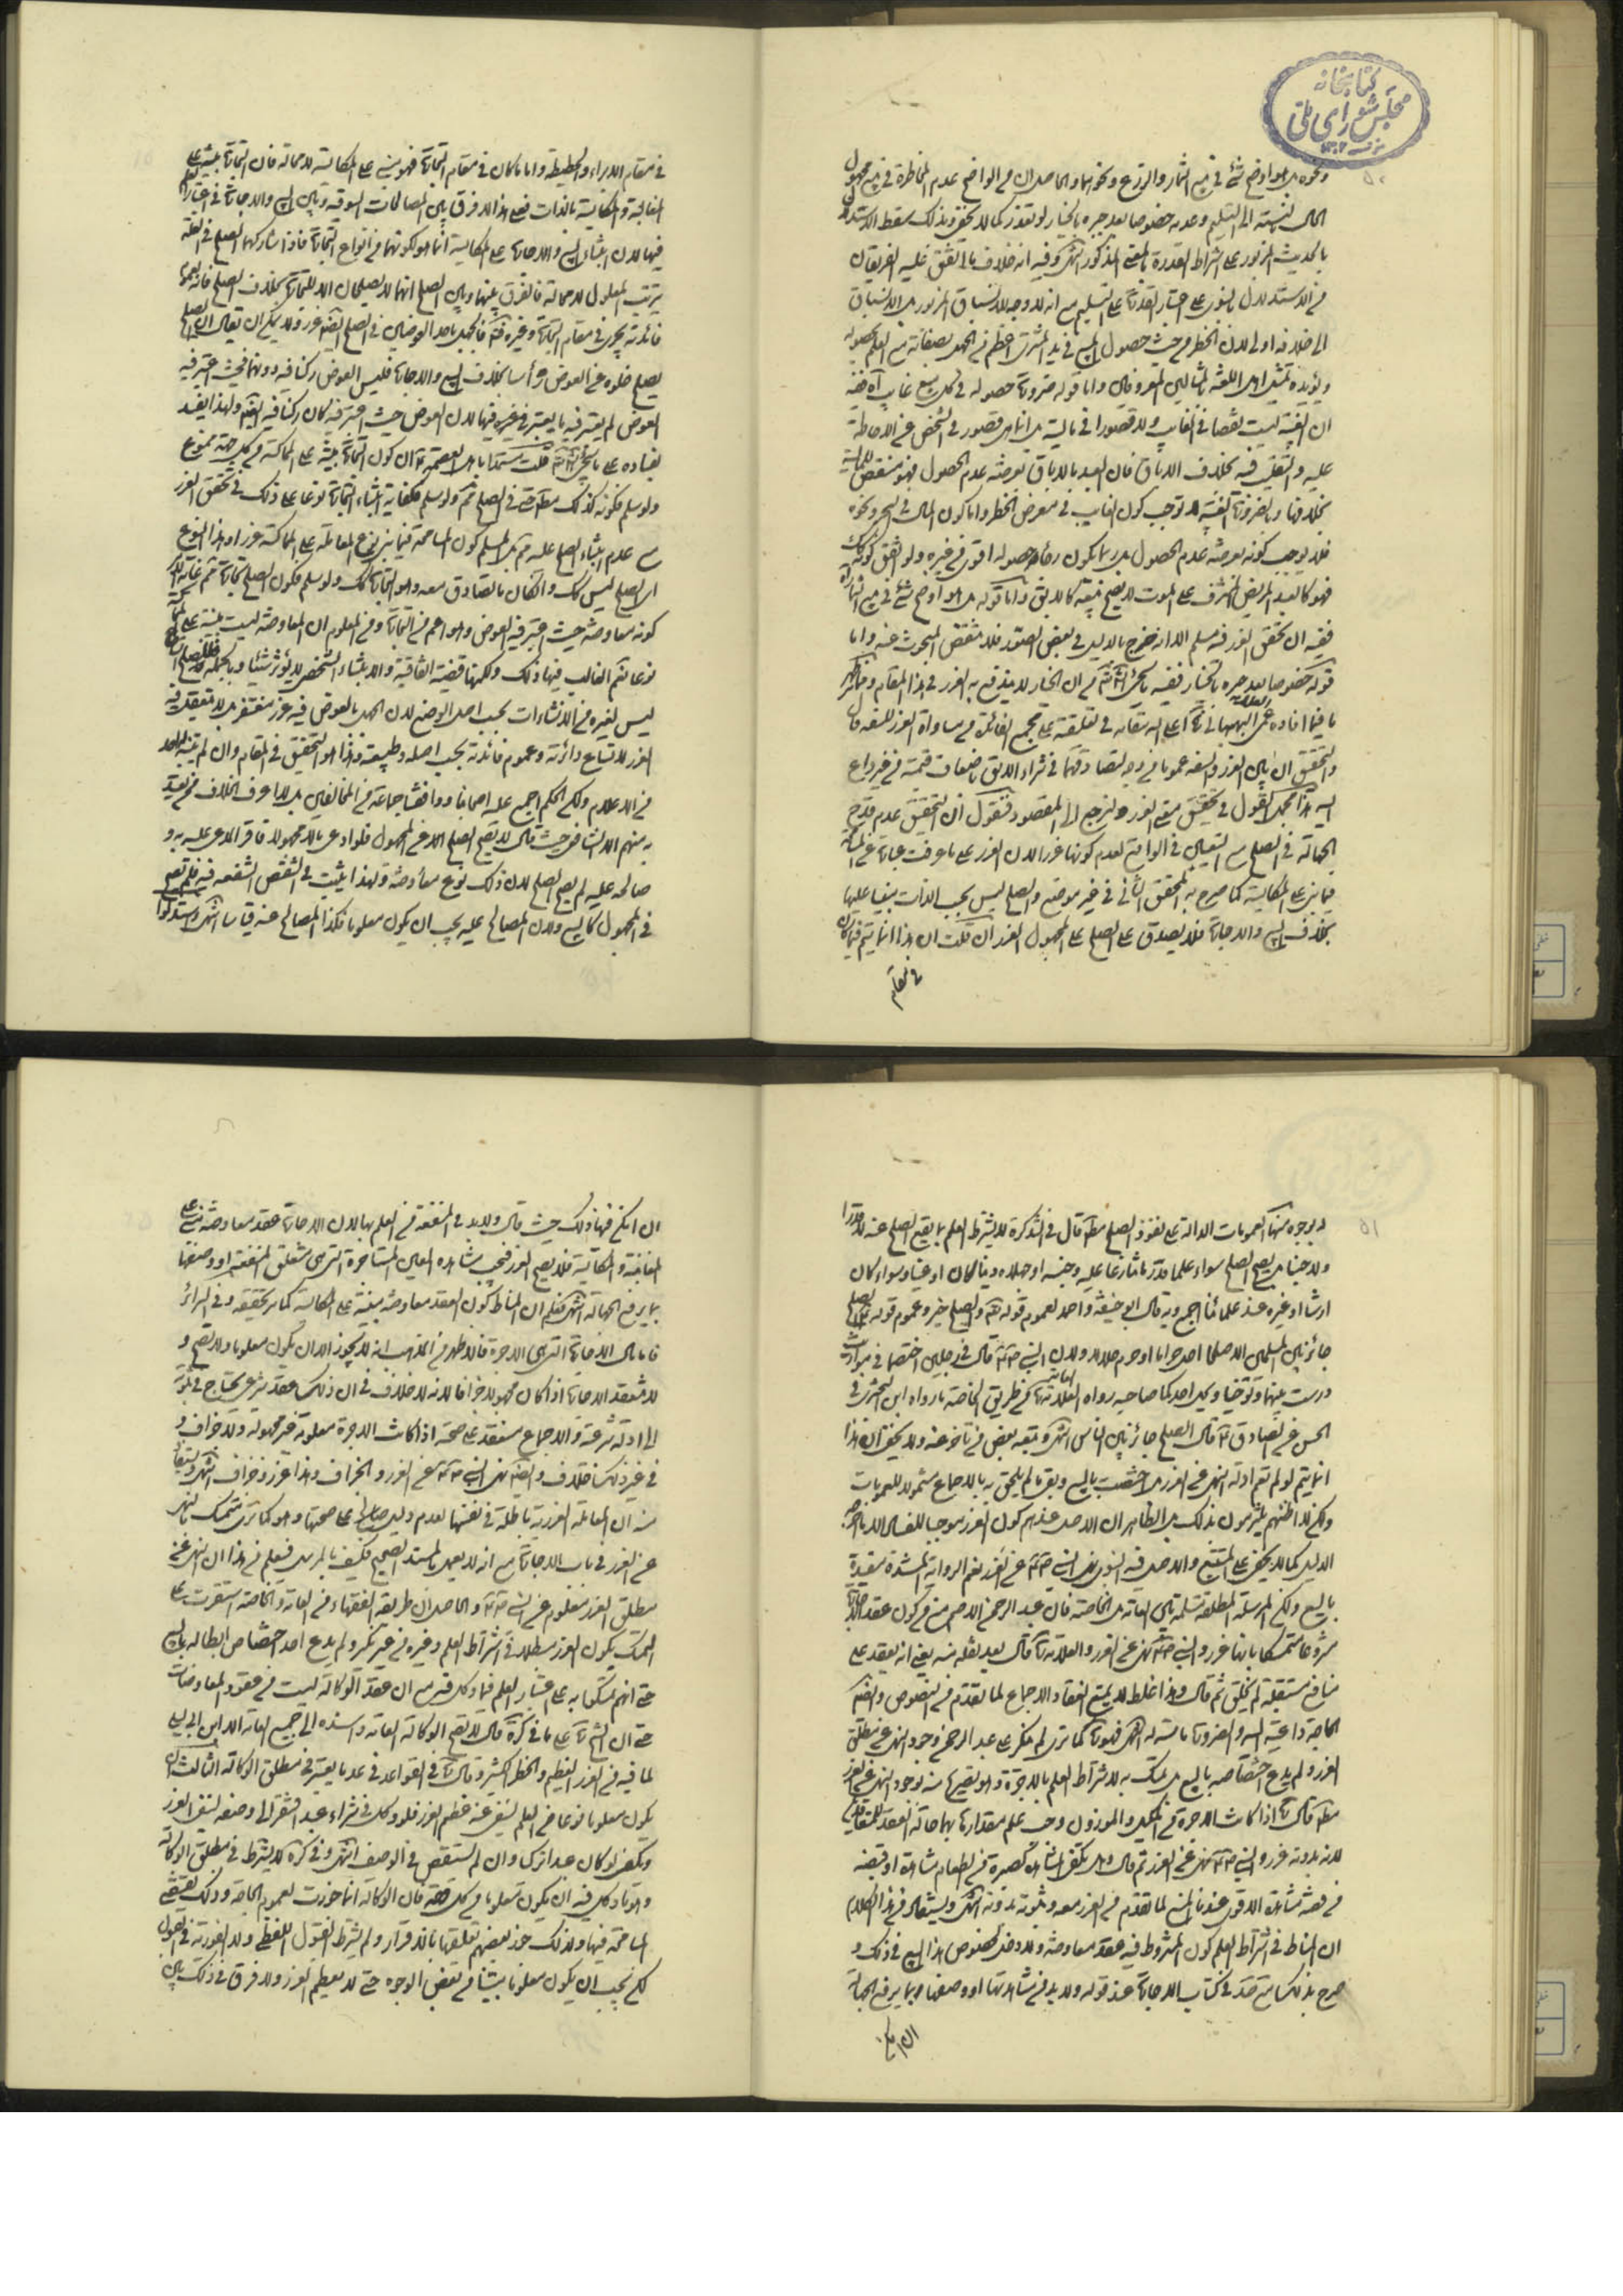 كتابخانه
مجلس شورای ملی
ونحوه بل هو اوضح شئ في بيع الثمار والزرع ونحوهما والحاصل ان من الواضح عدم المخاطرة في بيع مجهول
الحال بالنسبة الى التسليم وعدمه خصوصا بعد جبره بالخيار لو تعذر كما لا يخفى وبذلك سقط الاستدلال
بالحديث المزبور على اشتراط القدرة بالمعنى المذكور انتهى وفيه انه خلاف ما اتفق عليه الفريقان
من الاستدلال بالنبوي على اعتبار القدرة على التسليم مع انه لا وجه لانسباق المزبور بل الانسباق
الى خلافه اولى لان الخطر من حيث حصول المبيع في يد المشتري اعظم من الجهل بصفاته مع العلم بحصوله
ويؤيده تمثيل اهل اللغة بالمثالين المعروفين واما قوله ضرورة حصوله في كل بيع غايب آه ففيه
ان الغيبة ليست نقصا في الغايب ولا قصورا في ماليته بل انما هي قصور في الشخص عن الاحاطة
عليه والتقلب فيه بخلاف الاباق فان العبد بالاباق يعرضه عدم الحصول فهو منقص للمالية
بخلافها وبالضرورة الغيبة لا توجب كون الغايب في معرض الخطر واما كون المال في البحر ونحوه
فلا يوجب كونه يعرضه عدم الحصول بل ربما يكون رجاء حصوله اقوى من غيره ولو اتفق كونه كذلك
فهو كالعبد المريض المشرف على الموت لا يصح بيعه كالابق واما قوله بل هو اوضح شئ في بيع الثمار آه
ففيه ان تحقق الغرر فيه مسلم الا انه خرج بالدليل في بعض الصور فلا ينتقض المبحوث عنه واما
قوله خصوصا بعد جبره بالخيار ففيه ما سيجئ انشاء الله من ان الخيار لا يندفع به الغرر في هذا المقام
ما فيما افاده البهبهاني على الله مقامه في تعليقته على مجمع الفائدة من مساواة الغرر للسفه قال
والتحقيق ان بين الغرر والسفه عموما من وجه لتصادقهما في شراء الابق باضعاف قيمته من غير داع
اليه هذا مجمل القول في تحقيق معنى الغرر ولنرجع الى المقصود فنقول ان التحقيق عدم قدح
الجهالة في الصلح مع التعيين في الواقع لعدم كونها غررا لان الغرر على ما عرفت عبارة عن الجهالة
فيما بني على المكايسة كما صرح به المحقق الثاني في غير موضع والصلح ليس بحسب الذات مبنيا عليها
بخلاف البيع والاجارة فلا يصدق على الصلح على المجهول الغرر ان قلت ان هذا انما يتم فيما كان
في مقام
في مقام الابراء والحطيطة واما ما كان في مقام التجارة فهو مبني على المكايسة لا محالة فان التجارة مبنية على
المغابنة والمكايسة بالذات فعلى هذا لا فرق بين المصالحات السوقية وبين البيع والاجارة في اعتبار العلم
فيها لان ابتناء البيع والاجارة على المكايسة انما هو لكونهما من انواع التجارة فاذا شاركهما الصلح في العلة
يترتب المعلول لا محالة فالفرق بينهما وبين الصلح انهما لا يصلحان الا للتجارة بخلاف الصلح فانه لعموم
فائدته يجري في مقام التجارة وغيره قلت فالجهل باحد العوضين في الصلح ايضا غرر ولا يمكن ان يقال ان الصلح
يصلح خلوه عن العوض رأسا بخلاف البيع والاجارة فليس العوض ركنا فيه دونهما فحيث اعتبر فيه
العوض لم يعتبر فيه ما يعتبر في غيره فيهما لان العوض حيث اعتبر فيه كان ركنا فيه ايضا ولهذا يفسد
بفساده على ما سيجئ انشاء الله قلت مستمدا باهل العصمة ان كون التجارة مبنية على المماكسة من كل جهة ممنوع
ولو سلم فكونه كذلك مطلقا حتى في الصلح ثم ولو سلم فكفاية ابتناء التجارة نوعا على ذلك في تحقق الغرر
مع عدم ابتناء الصلح عليه ثم بل المسلم كون المسامحة فيما بني نوع المعاملة على المماكسة غررا وهذا النوع
اي الصلح ليس كذلك وان كان ما تصادق معه وهو التجارة كذلك ولو سلم فكون الصلح تجارة ثم غاية الامر
كونه معاوضة حيث اعتبر فيه العوض وهو اعم من التجارة ومن المعلوم ان المعاوضة ليست مبنية على المماكسة
نوعا نعم الغالب فيها ذلك ولكنها قضية اتفاقية والابتناء الشخصي لا يؤثر شيئا وبالجملة فللصلح شأن
ليس لغيره من الانشاءات بحسب اصل الوضع لان الجهل بالعوض فيه غرر مغتفر بل لا تعقل فيه
الغرر لاتساع دائرته وعموم فائدته بحسب اصله وطبيعته وهذا هو التحقيق في المقام وان لم يتنبه له احد
من الاعلام ولكن الحكم اجمع عليه اصحابنا ووافقنا جماعة من المخالفين بل لا اعرف الخلاف من احد
منهم الا الشافعي حيث قال لا يصح الصلح الا عن المجهول فلو ادعى مالا مجهولا فاقر المدعى عليه به و
صالحه عليه لم يصح الصلح لان ذلك نوع معاوضة ولهذا يثبت في الشقص الشفعة فيه فلم تصح
في المجهول كالبيع ولان المصالح عليه يجب ان يكون معلوما فكذا المصالح عنه قياسا انتهى واستدلوا
له بوجوه منها العمومات الدالة على نفوذ الصلح مطلقا قال في التذكرة لا يشترط العلم بما يقع الصلح عنه لا قدرا
ولا جنسا بل يصح الصلح سواء علما قدر ما تنازعا عليه وجنسه او جهلاه دينا كان او عينا وسواء كان
ارثا او غيره عند علمائنا اجمع وبه قال ابو حنيفة واحمد لعموم قوله تعالى والصلح خير وعموم قوله الصلح
جائز بين المسلمين الا صلحا احل حراما او حرم حلالا ولان النبي قال في رجلين اختصما في مواريث
درست بينهما وتوخيا وليحل احدكما صاحبه رواه العامة ومن طريق الخاصة ما رواه ابن البختري في
الحسن عن الصادق ع قال الصلح جائز بين الناس انتهى وتبعه بعض من تاخر عنه ولا يخفى ان هذا
انما يتم لو لم تعم ادلة النهي عن الغرر بل اختصت بالبيع وبقي ما لم يلحق به بالاجماع مشمولا للعمومات
ولكن لا اظنهم يلتزمون بذلك بل الظاهر ان الاصل عندهم كون الغرر موجبا للفساد الا ما اخرجه
الدليل كما لا يخفى على المتتبع والاصل فيه النبوي نهى النبي عن الغرر نعم الرواية المسندة مقيدة
بالبيع ولكن المرسلة المطلقة مسلمة بين العامة بل الخاصة فان عبد الرحمن الاصم منع من كون عقد الاجارة
مشروعا متمسكا بانها غرر والنبي نهى عن الغرر والعلامة قال بعد نقله منه يعني انه يعقد على
منافع مستقبلة لم تخلق ثم قال وهذا غلط لا يمنع انعقاد الاجماع لما تقدم من النصوص وايضا
الحاجة داعية اليه والضرورة ماسة له انتهى فهو كما ترى لم ينكر على عبد الرحمن وجود النهي عن مطلق
الغرر ولم يدع اختصاصه بالبيع بل تمسك به لاشتراط العلم بالاجرة وهو تصريح منه بوجود النهي عن الغرر
مطلقا قال اذا كانت الاجرة من المكيل والموزون وجب علم مقدارها بهما حالة العقد للمتعاقدين
لانه بدونه غرر والنبي نهى عن الغرر ثم قال وهل يكفي المشاهدة كصبرة من الطعام مشاهدة او قبضة
من فضة مشاهدة الاقوى عندنا المنع لما تقدم من الغرر معه وثبوته بدونه انتهى ويستفاد من هذا الكلام
ان المناط في اشتراط العلم كون المشروط فيه عقد معاوضة ولا دخل لخصوص هذا البيع في ذلك و
صرح بذلك في كتاب الاجارة عند قوله ولا بد من مشاهدتها او وصفها بما يرفع الجهالة
ان امكن
ان امكن فيها ذلك حيث قال ولا بد في المنفعة من العلم بها لان الاجارة عقد معاوضة مبني على
المغابنة والمكايسة فلا يصح الغرر فيجب مشاهدة العين المستاجرة التي هي متعلق المنفعة او وصفها
بما يرفع الجهالة انتهى فعلم ان المناط كون العقد معاوضة مبنية على المكايسة كما مر تحقيقه وفي السرائر
فاما مال الاجارة التي هي الاجرة فالاظهر من المذهب انه لا يجوز الا ان يكون معلوما ولا تصح و
لا تنعقد الاجارة اذا كان مجهولا جزافا لانه لا خلاف في ان ذلك عقد شرعي يحتاج في ثبوته
الى ادلة شرعية والاجماع منعقد على صحته اذا كانت الاجرة معلومة غير مجهولة ولا جزاف و
في غير ذلك خلاف وايضا نهى النبي عن الغرر والجزاف وهذا غرر وجزاف انتهى
منه ان المعاملة الغررية باطلة في نفسها لعدم دليل صالح على صحتها وهو كما ترى متمسك بالنهي
عن الغرر في باب الاجارة مع انه لا يعمل بالمسند الصحيح فكيف بالمرسل فيعلم من هذا ان النهي عن
مطلق الغرر معلوم عن النبي والحاصل ان طريقة الفقهاء من العامة والخاصة استقرت على
التمسك بكون الغرر مبطلا في اشتراط العلم وغيره من غير نكير ولم يدع احد اختصاص ابطاله بالبيع
حتى انهم تمسكوا به على اعتبار العلم فيما وكل فيه مع ان عقد الوكالة ليست من عقود المعاوضات
حتى ان الشيخ على ما في كره قال لا تصح الوكالة العامة واسنده الى جميع العامة الا ابن ابي ليلى
لما فيه من الغرر العظيم والخطر الكثير وقال في القواعد في عد ما يعتبر في مطلق الوكالة الثالث ان
يكون معلوما نوعا من العلم لينتفي عنه عظم الغرر فلو وكله في شراء عبد افتقر الى وصفه لينتفي الغرر
ويكفي لو كان عبدا تركيا وان لم يستقص في الوصف انتهى وفي كره لا يشترط في مطلق الوكالة
وهو ما وكل فيه ان يكون معلوما من كل جهة فان الوكالة انما جوزت لعموم الحاجة وذلك يقتضي
المسامحة فيها ولذلك جوز بعضهم تعليقها بالاقرار ولم يشترط القبول اللفظي ولا الفورية في القبول
لكن يجب ان يكون معلوما مبينا من بعض الوجوه حتى لا يعظم الغرر ولا فرق في ذلك بين